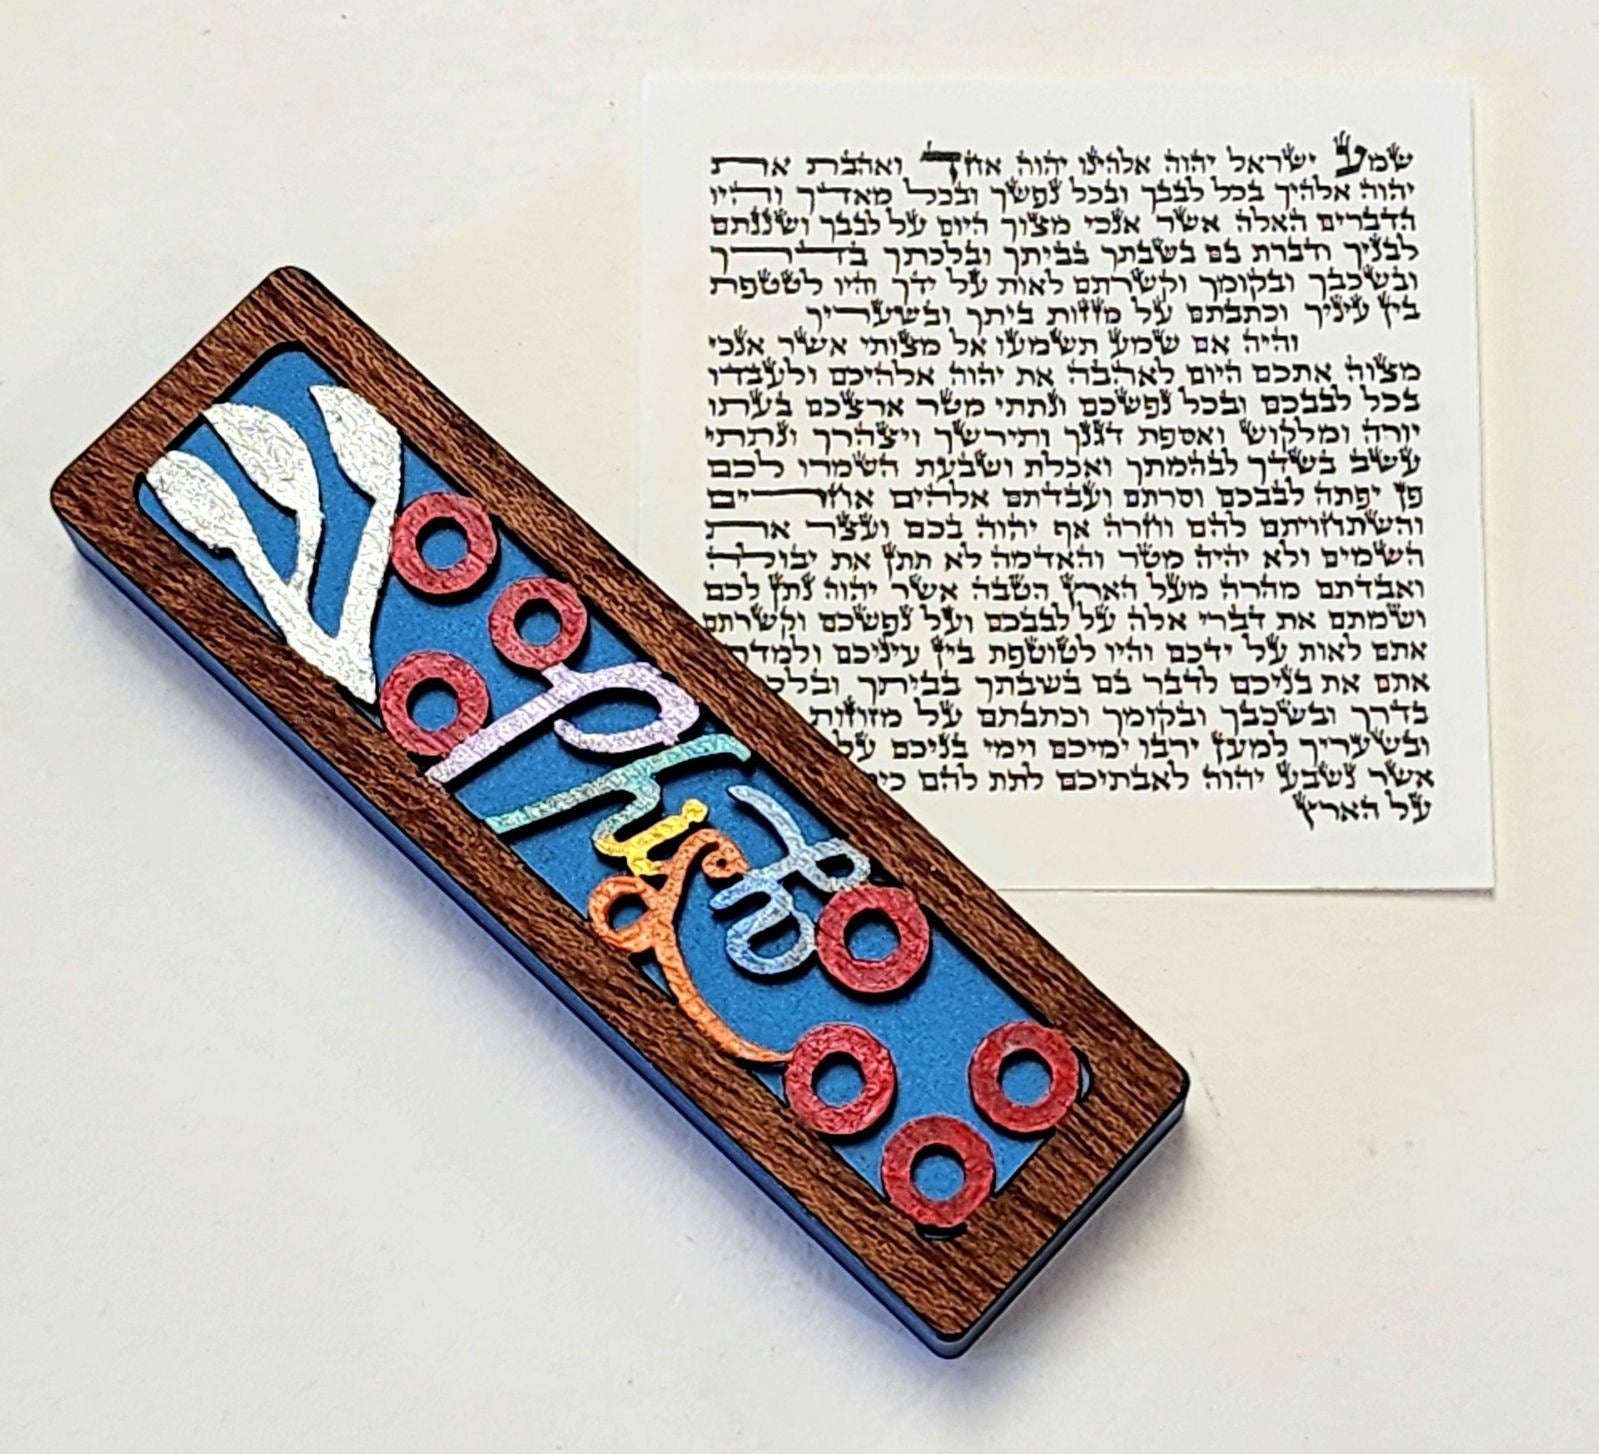 ש
שמע ישראל יהוה אלהינו יהוה אחד ואהבת את
יהוה אלהיך בכל לבבך ובכל נפשך ובכל מאדך והיו
הדברים האלה אשר אנכי מצוך היום על לבבך ושננתם
לבניך ודברת בם בשבתך בביתך ובלכתך בדרך
ובשכבך ובקומך וקשרתם לאות על ידך והיו לטטפת
בין עיניך וכתבתם על מזזות ביתך ובשעריך
והיה אם שמע תשמעו אל מצותי אשר אנכי
מצוה אתכם היום לאהבה את יהוה אלהיכם ולעבדו
בכל לבבכם ובכל נפשכם ונתתי מטר ארצכם בעתו
יורה ומלקוש ואספת דגנך ותירשך ויצהרך ונתתי
עשב בשדך לבהמתך ואכלת ושבעת השמרו לכם
פן יפתה לבבכם וסרתם ועבדתם אלהים אחרים
והשתחויתם להם וחרה אף יהוה בכם ועצר את
השמים ולא יהיה מטר והאדמה לא תתן את יבולה
ואבדתם מהרה מעל הארץ הטבה אשר יהוה נתן לכם
ושמתם את דברי אלה על לבבכם ועל נפשכם וקשרתם
אתם לאות על ידכם והיו לטוטפת בין עיניכם ולמדת
אתם את בניכם לדבר בם בשבתך בביתך ובלכ
בדרך ובשכבך ובקומך וכתבתם על מזוזות
ובשעריך למען ירבו ימיכם וימי בניכם על
אשר נשבע יהוה לאבתיכם לתת להם כי
על הארץ